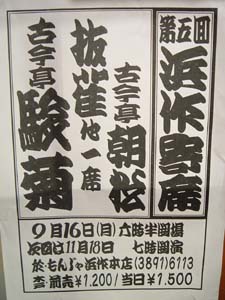 第五回
浜作寄席
古今亭朝松
抜雀他一席
古今亭駿菊
9月16日(月)六時半開場
次回は11月18日 七時開演
於・もんじゃ浜作本店(3891)6113
券・前売¥1.200/当日¥1.500